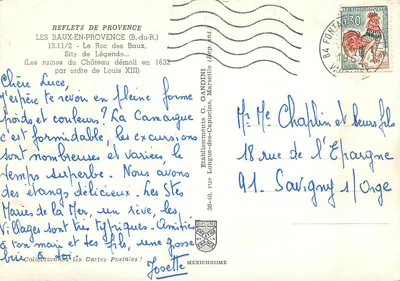 REFLETS DE PROVENCE
LES BAUX-EN-PROVENCE (B.-du-R.)
13.11/2 - Le Roc des Baux,
Site de Légende...
(Les ruines du Château démoli en 1632
par ordre de Louis XIII)
Chère Luce,
J'espère te revoir en pleine forme
poids et couleurs? La Camargue
c'est formidable, les excursions
sont nombreuses et variées, le
temps superbe. Nous avons
des étangs délicieux. Les Stes
Maries de la Mer, un rêve, les
Villages sont très typiques. Amitiés
à ton mari et tes fils, une grosse
bise à toi.
Josette
Collectionnez les Cartes Postales!
Etablissements C. GANDINI
36-40, rue Longue-des-Capucins, Marseille
MEXICHROME
84 FONTA
0,30
Mr Me Chaplin et leurs fils
18 rue de l'Epargne
91. Savigny s/Orge